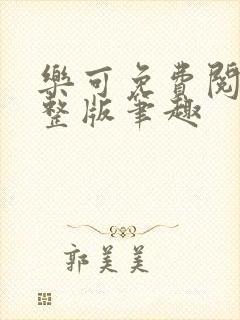 樂可免費閱
整版筆趣
郭美美